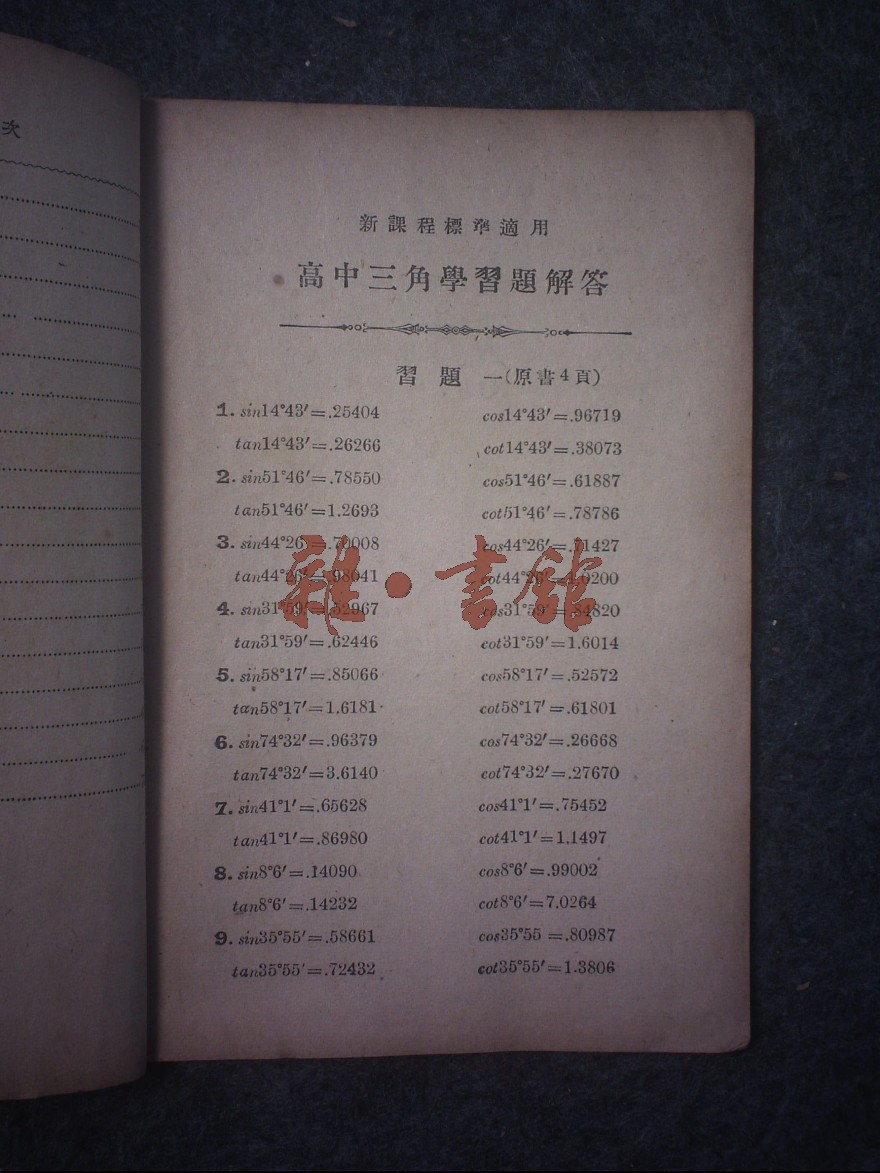 次
新課程標準適用
高中三角學習題解答
習題 一(原書4頁)
1. sin14°43′=.25404 cos14°43′=.96719
tan14°43′=.26266 cot14°43′=.38073
2. sin51°46′=.78550 cos51°46′=.61887
tan51°46′=1.2693 cot51°46′=.78786
3. sin44°26′=.70008 cos44°26′=.71427
tan44°26′=.98041 cot44°26′=1.0200
4. sin31°59′=.52967 cos31°59′=.84820
tan31°59′=.62446 cot31°59′=1.6014
5. sin58°17′=.85066 cos58°17′=.52572
tan58°17′=1.6181 cot58°17′=.61801
6. sin74°32′=.96379 cos74°32′=.26668
tan74°32′=3.6140 cot74°32′=.27670
7. sin41°1′=.65628 cos41°1′=.75452
tan41°1′=.86980 cot41°1′=1.1497
8. sin8°6′=.14090 cos8°6′=.99002
tan8°6′=.14232 cot8°6′=7.0264
9. sin35°55′=.58661 cos35°55=.80987
tan35°55′=.72432 cot35°55′=1.3806
雜·書館